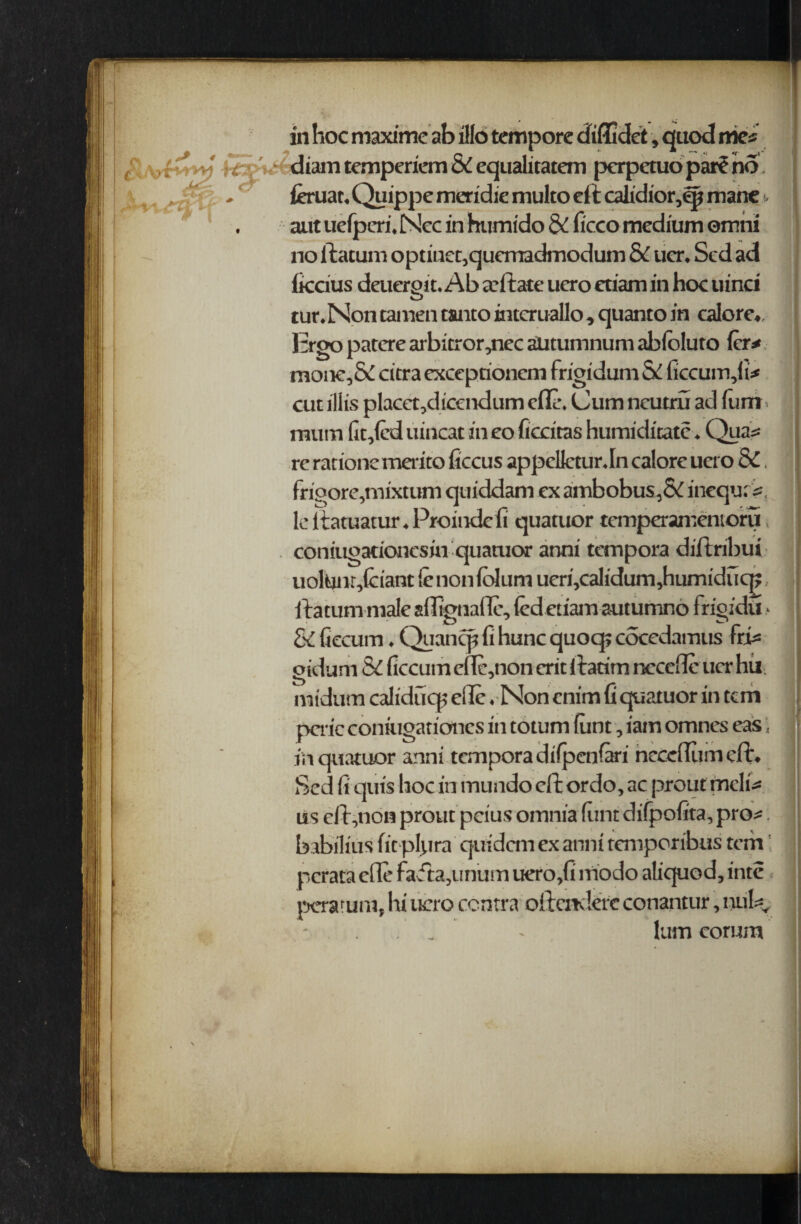 in hoc maxime ab illo tempore diſſidet, quod me⸗
diam temperiem & equalitatem perpetuo parē nō
ſeruat. Quippe meridie multo eſt calidior, ꝙ̃ mane
aut ueſperi. Nec in humido & ſicco medium omni
no ſtatum optinet, quemadmodum & uer. Sed ad
ſiccius deuergit. Ab æſtate uero etiam in hoc uinci
tur. Non tamen tanto interuallo, quanto in calore.
Ergo patere arbitror, nec autumnum abſoluto ſer⸗
mone, & citra exceptionem frigidum & ſiccum, ſi⸗
cut illis placet, dicendum eſſe. Cum neutrū ad ſum
mum ſit, ſed uincat in eo ſiccitas humiditatē. Qua⸗
re ratione merito ſiccus appelletur. In calore uero &
frigore, mixtum quiddam ex ambobus, & inequa⸗
le ſtatuatur. Proinde ſi quatuor temperamentorū
coniugationes in quatuor anni tempora diſtribui
uolunt, ſciant ſe non ſolum ueri, calidum, humidūꝙ
ſtatum male aſſignaſſe, ſed etiam autumno frigidū
& ſiccum. Quanꝙ̃ ſi hunc quoꝙ cōcedamus fri⸗
gidum & ſiccum eſſe, non erit ſtatim neceſſe uer hu
midum calidūꝙ eſſe. Non enim ſi quatuor in tem
perie coniugationes in totum ſunt, iam omnes eas
in quatuor anni tempora diſpenſari neceſſum eſt.
Sed ſi quis hoc in mundo eſt ordo, ac prout meli⸗
us eſt, non prout peius omnia ſunt diſpoſita, pro⸗
babilius ſit plura quidem ex anni temporibus tem
perata eſſe facta, unum uero, ſi modo aliquod, intē
peratum, hi uero contra oſtendere conantur, nul⸗
lum eorum